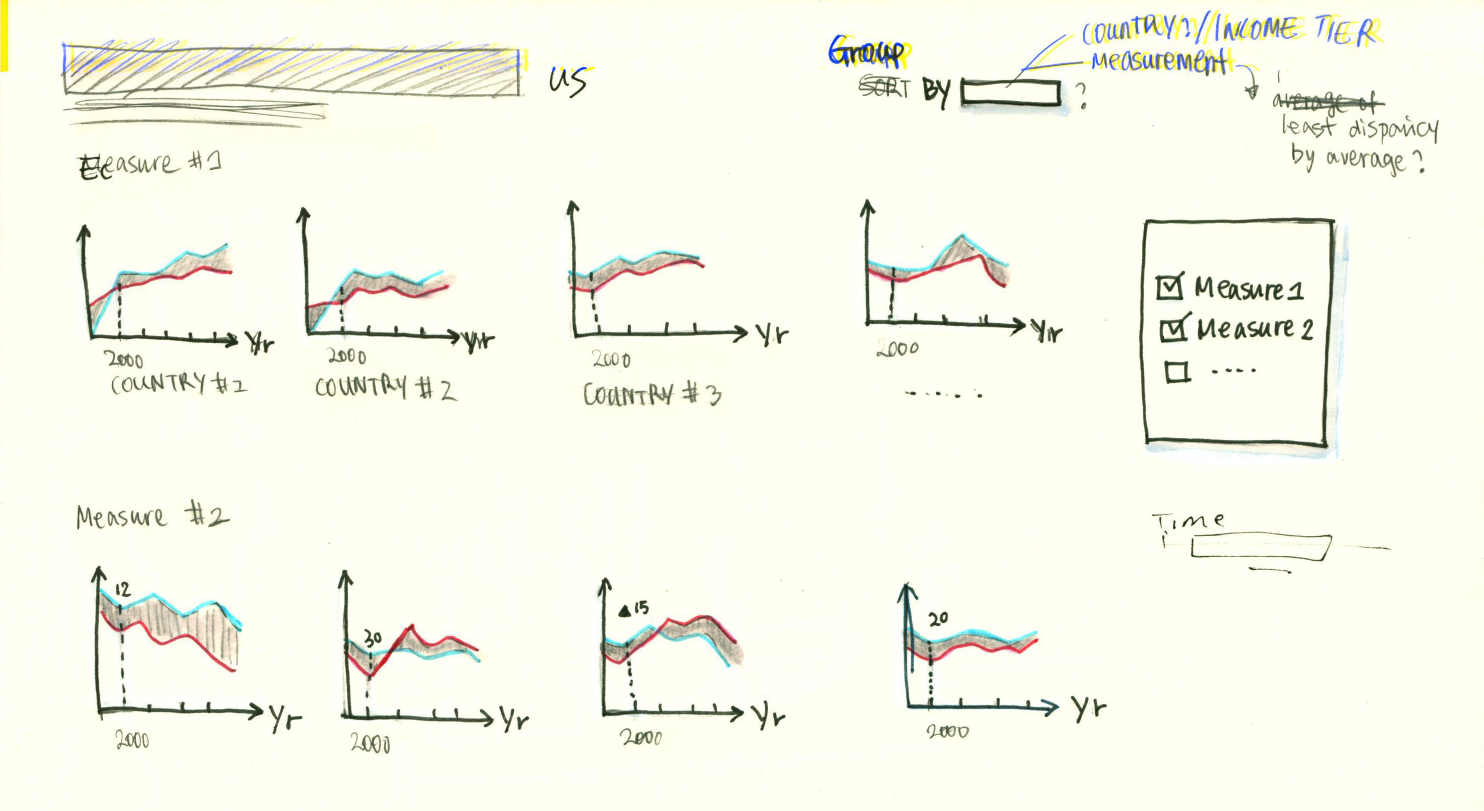 US
Group
SORT BY ?
COUNTRY?/INCOME TIER
measurement
average of
least dispancy
by average?
Measure #1
Yr
2000
COUNTRY #1
Yr
2000
COUNTRY #2
Yr
2000
COUNTRY #3
Yr
2000
.....
Measure 1
Measure 2
....
Measure #2
12
Yr
2000
30
Yr
2000
▲15
Yr
2000
20
Yr
2000
Time